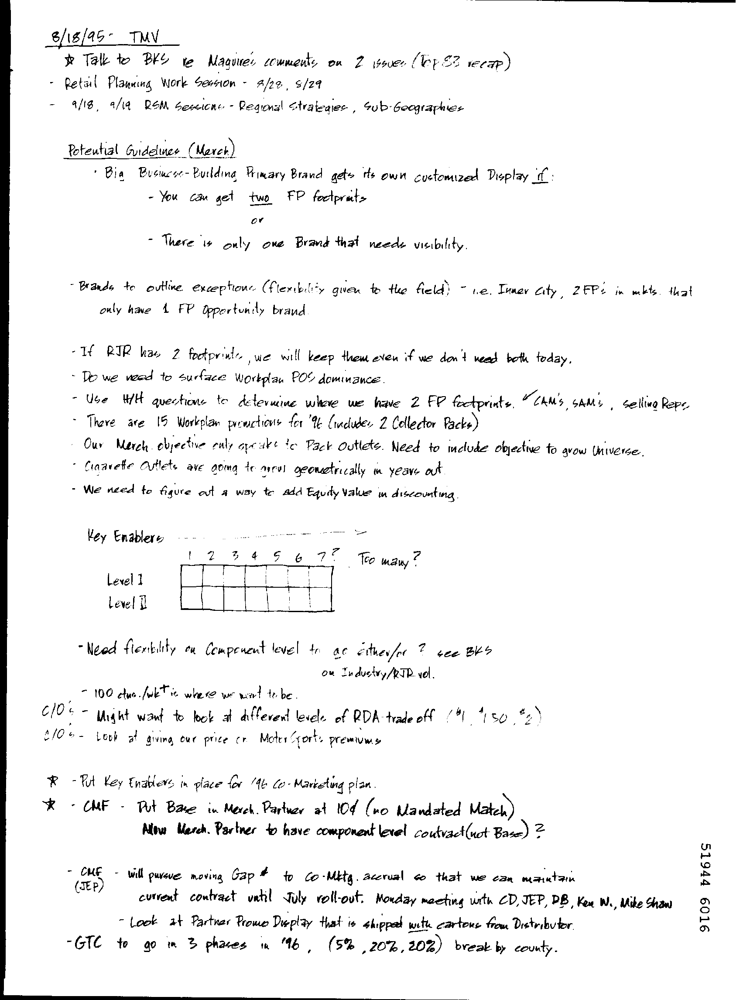 8/18/95 - TMV
☆ Talk to BKS re Maguire's comments on 2 issues (Top 83 recap)
- Retail Planning Work Session - 8/28, 8/29
- 9/18, 9/19 RSM Sessions - Regional Strategies, Sub-Geographies
Potential Guidelines (Merch)
· Big Business-Building Primary Brand gets its own customized Display if:
- You can get two FP footprints
or
- There is only one Brand that needs visibility.
- Brands to outline exceptions (flexibility given to the field) - i.e. Inner City, 2 FP's in mkts. that
only have 1 FP Opportunity brand
- If RJR has 2 footprints, we will keep them even if we don't need both today.
- Do we need to surface Workplan POS dominance.
- Use H/H questions to determine where we have 2 FP footprints. CAM's, SAM's, Selling Reps
- There are 15 Workplan promotions for '96 (includes 2 Collector Packs)
- Our Merch. objective only speaks to Pack Outlets. Need to include objective to grow Universe.
- Cigarette Outlets are going to grow geometrically in years out
- We need to figure out a way to add Equity Value in discounting.
Key Enablers
1 2 3 4 5 6 7? Too many?
Level I
Level II
- Need flexibility on Component level to go either/or ? see BKS
on Industry/RJR vol.
- 100 ctns./wk+ is where we want to be.
C/O's - Might want to look at different levels of RDA trade off ($1, $1.50, $2)
C/O's - Look at giving our price on MotorSports premiums
☆ - Put Key Enablers in place for '96 Co-Marketing plan.
☆ - CMF - Put Base in Merch. Partner at 10¢ (no Mandated Match)
Allow Merch. Partner to have component level contract (not Base) ?
- CMF - will pursue moving Gap $ to Co-Mktg. accrual so that we can maintain
(JEP) current contract until July roll-out. Monday meeting with CD, JEP, DB, Ken W., Mike Shaw
- Look at Partner Promo Display that is shipped with cartons from Distributor.
- GTC to go in 3 phases in '96, (5%, 20%, 20%) break by county.
51944 6016